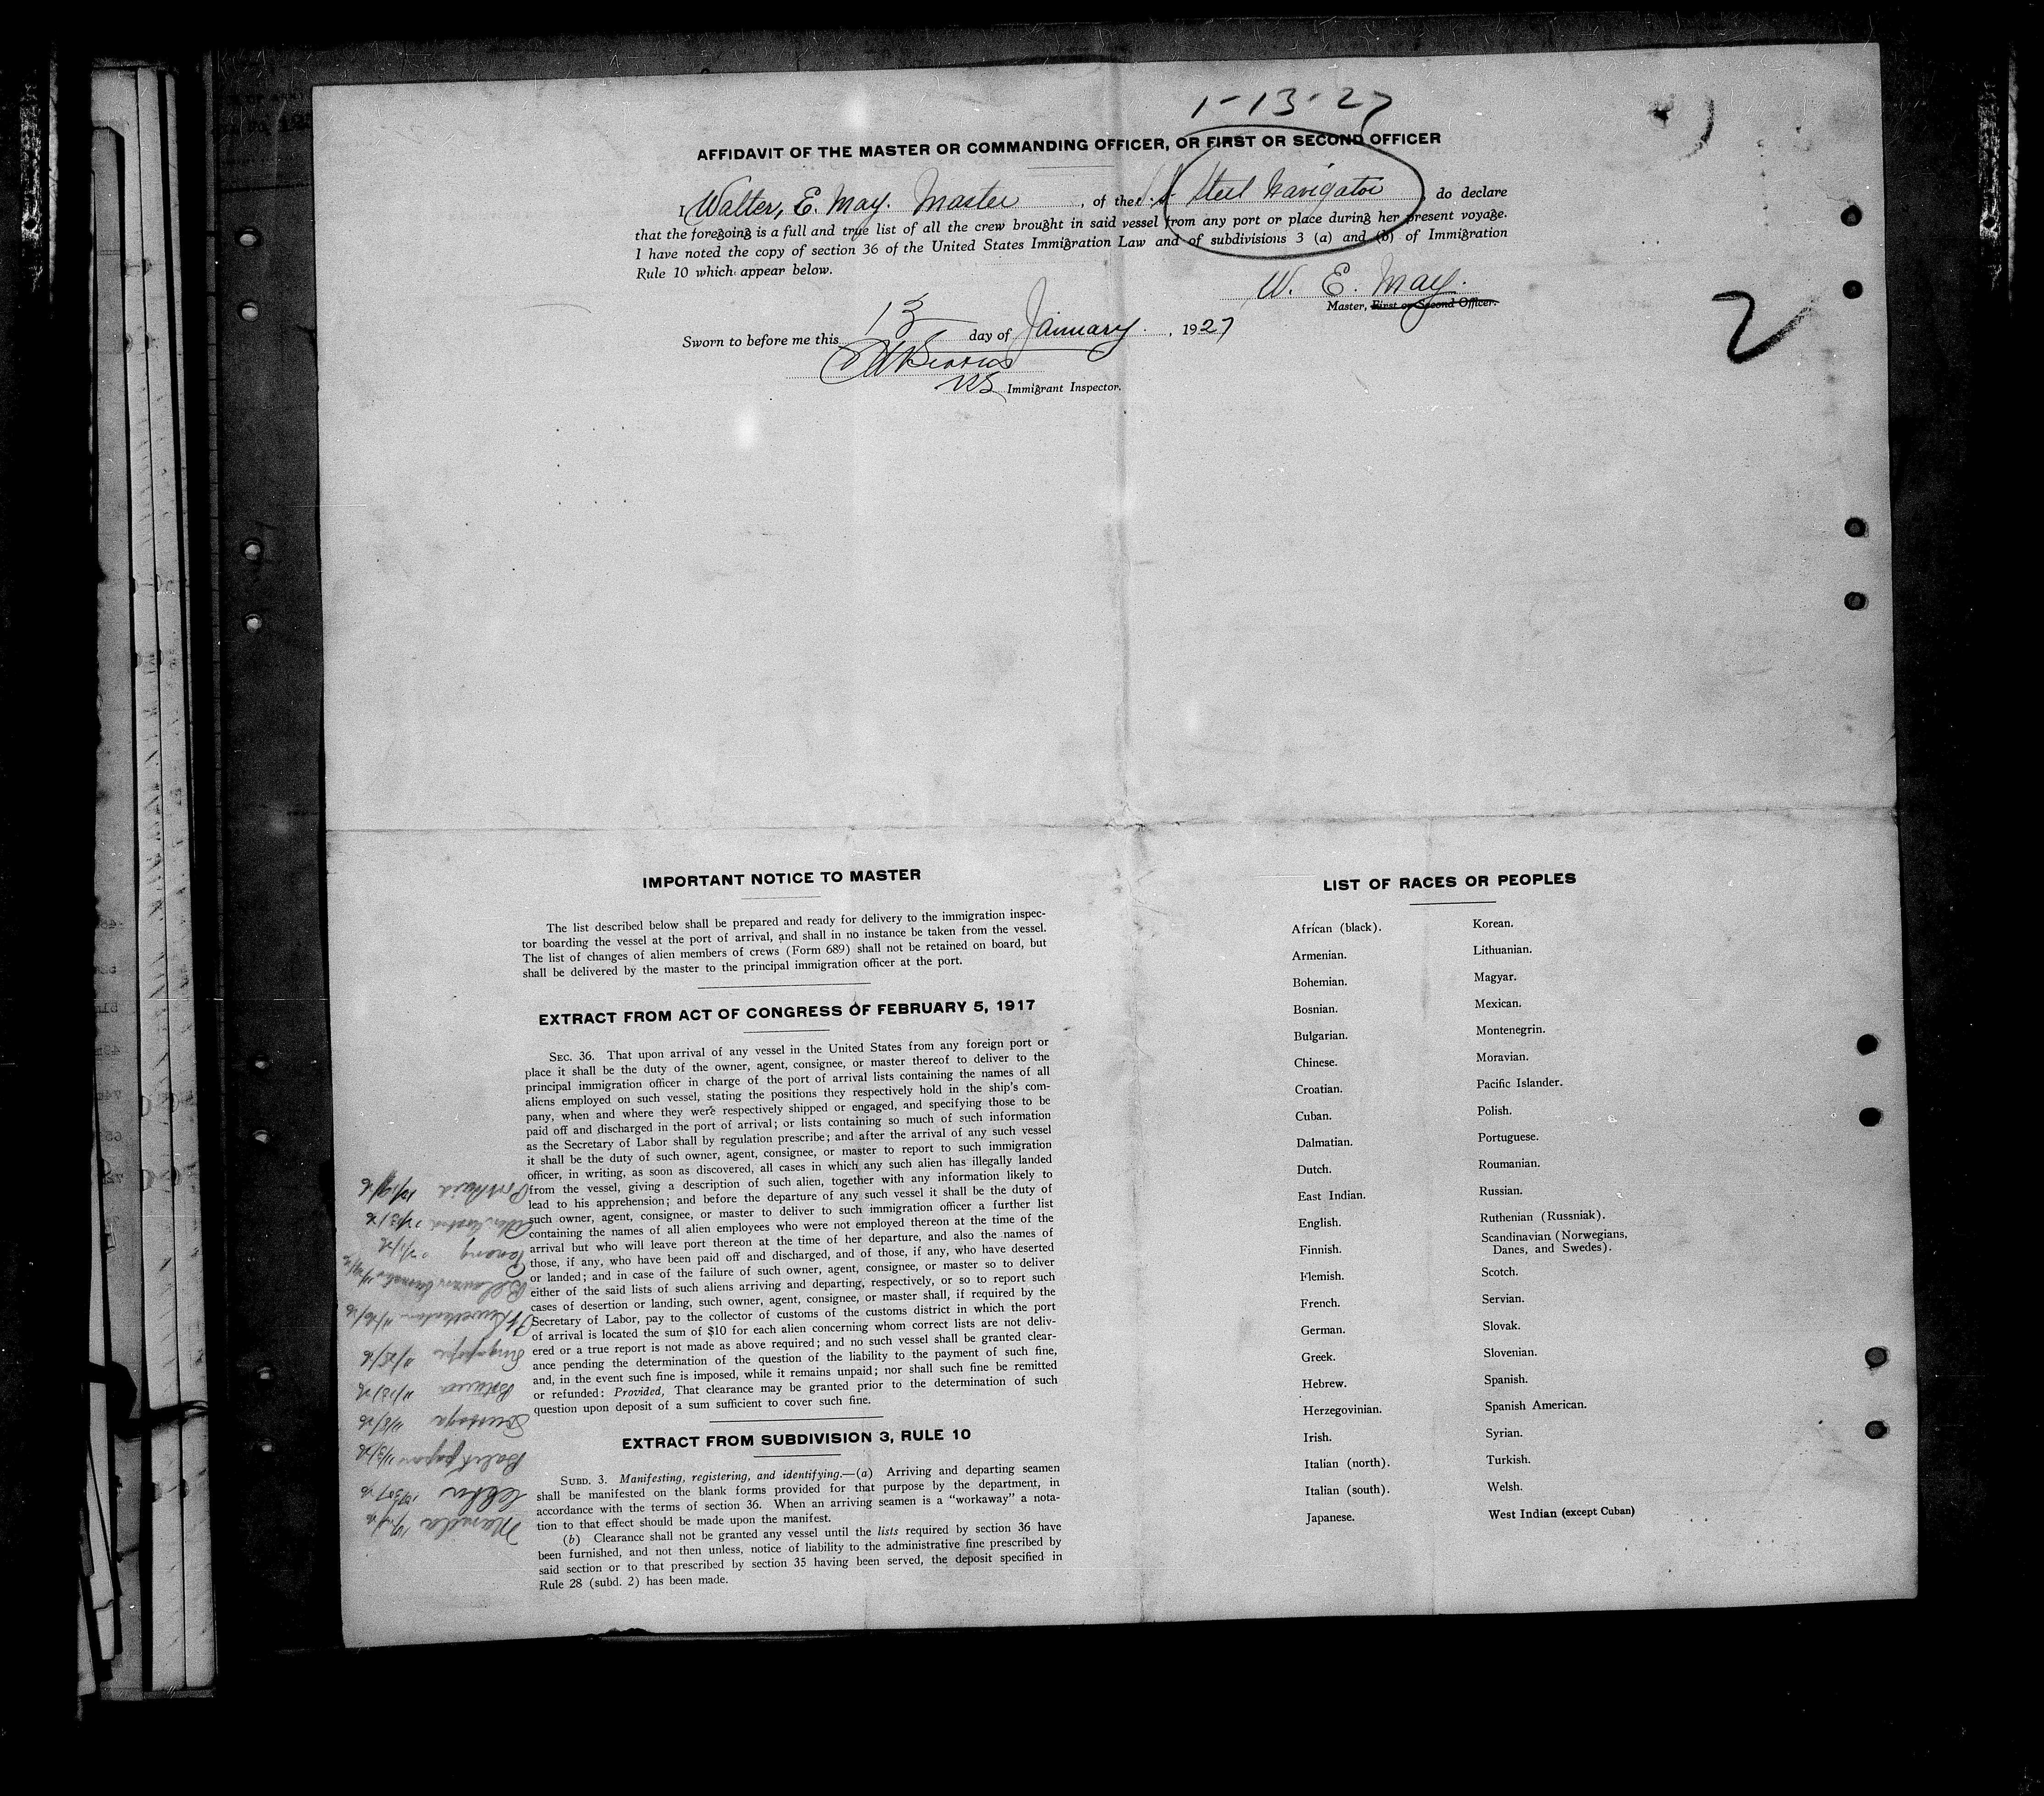 1-13-27
AFFIDAVIT OF THE MASTER OR COMMANDING OFFICER, OR FIRST OR SECOND OFFICER
I Walter, E. May. Master, of the S.S. Steel Navigator do declare
that the foregoing is a full and true list of all the crew brought in said vessel from any port or place during her present voyage.
I have noted the copy of section 36 of the United States Immigration Law and of subdivisions 3 (a) and (b) of Immigration
Rule 10 which appear below.
W. E. May.
Master, First or Second Officer.
2
Sworn to before me this 13 day of January, 1927
Immigrant Inspector.
IMPORTANT NOTICE TO MASTER
The list described below shall be prepared and ready for delivery to the immigration inspec-
tor boarding the vessel at the port of arrival, and shall in no instance be taken from the vessel.
The list of changes of alien members of crews (Form 689) shall not be retained on board, but
shall be delivered by the master to the principal immigration officer at the port.
EXTRACT FROM ACT OF CONGRESS OF FEBRUARY 5, 1917
SEC. 36. That upon arrival of any vessel in the United States from any foreign port or
place it shall be the duty of the owner, agent, consignee, or master thereof to deliver to the
principal immigration officer in charge of the port of arrival lists containing the names of all
aliens employed on such vessel, stating the positions they respectively hold in the ship's com-
pany, when and where they were respectively shipped or engaged, and specifying those to be
paid off and discharged in the port of arrival; or lists containing so much of such information
as the Secretary of Labor shall by regulation prescribe; and after the arrival of any such vessel
it shall be the duty of such owner, agent, consignee, or master to report to such immigration
officer, in writing, as soon as discovered, all cases in which any such alien has illegally landed
from the vessel, giving a description of such alien, together with any information likely to
lead to his apprehension; and before the departure of any such vessel it shall be the duty of
such owner, agent, consignee, or master to deliver to such immigration officer a further list
containing the names of all alien employees who were not employed thereon at the time of the
arrival but who will leave port thereon at the time of her departure, and also the names of
those, if any, who have been paid off and discharged, and of those, if any, who have deserted
or landed; and in case of the failure of such owner, agent, consignee, or master so to deliver
either of the said lists of such aliens arriving and departing, respectively, or so to report such
cases of desertion or landing, such owner, agent, consignee, or master shall, if required by the
Secretary of Labor, pay to the collector of customs of the customs district in which the port
of arrival is located the sum of $10 for each alien concerning whom correct lists are not deliv-
ered or a true report is not made as above required; and no such vessel shall be granted clear-
ance pending the determination of the question of the liability to the payment of such fine,
and, in the event such fine is imposed, while it remains unpaid; nor shall such fine be remitted
or refunded: Provided, That clearance may be granted prior to the determination of such
question upon deposit of a sum sufficient to cover such fine.
EXTRACT FROM SUBDIVISION 3, RULE 10
SUBD. 3. Manifesting, registering, and identifying.—(a) Arriving and departing seamen
shall be manifested on the blank forms provided for that purpose by the department, in
accordance with the terms of section 36. When an arriving seamen is a "workaway" a nota-
tion to that effect should be made upon the manifest.
(b) Clearance shall not be granted any vessel until the lists required by section 36 have
been furnished, and not then unless, notice of liability to the administrative fine prescribed by
said section or to that prescribed by section 35 having been served, the deposit specified in
Rule 28 (subd. 2) has been made.
Manila
Cebu
Balikpapan 11/3/26
Surabaya 11/8/26
Batavia 11/13/26
Singapore
Penang
Port Said
LIST OF RACES OR PEOPLES
African (black).
Armenian.
Bohemian.
Bosnian.
Bulgarian.
Chinese.
Croatian.
Cuban.
Dalmatian.
Dutch.
East Indian.
English.
Finnish.
Flemish.
French.
German.
Greek.
Hebrew.
Herzegovinian.
Irish.
Italian (north).
Italian (south).
Japanese.
Korean.
Lithuanian.
Magyar.
Mexican.
Montenegrin.
Moravian.
Pacific Islander.
Polish.
Portuguese.
Roumanian.
Russian.
Ruthenian (Russniak).
Scandinavian (Norwegians,
Danes, and Swedes).
Scotch.
Servian.
Slovak.
Slovenian.
Spanish.
Spanish American.
Syrian.
Turkish.
Welsh.
West Indian (except Cuban)